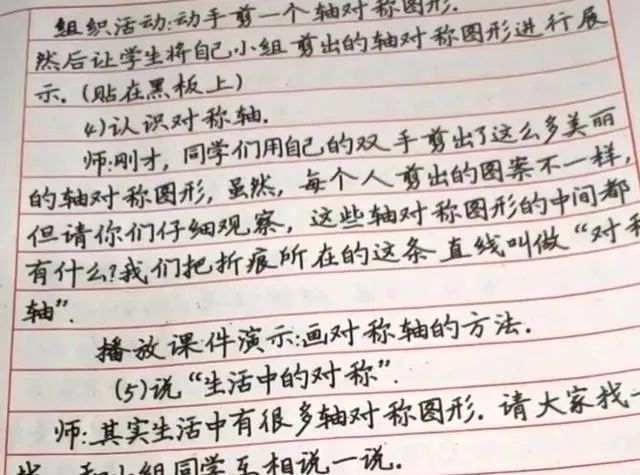 组织活动:动手剪一个轴对称图形.
然后让学生将自己小组剪出的轴对称图形进行展
示.(贴在黑板上)
4)认识对称轴.
师:刚才,同学们用自己的双手剪出了这么多美丽
的轴对称图形,虽然,每个人剪出的图案不一样,
但请你们仔细观察,这些轴对称图形的中间都
有什么?我们把折痕所在的这条直线叫做“对称
轴”.
播放课件演示:画对称轴的方法.
(5)说“生活中的对称”.
师:其实生活中有很多轴对称图形.请大家找一
和小组同学互相说一说.